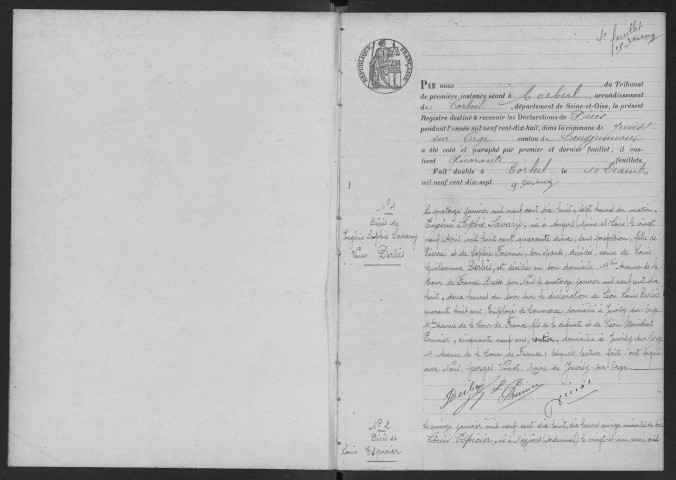 1er feuillet
RÉPUBLIQUE FRANÇAISE
PAR nous du Tribunal
de première instance séant à Corbeil, arrondissement
de Corbeil, département de Seine-et-Oise, le présent
Registre destiné à recevoir les Déclarations de Décès
pendant l'année mil neuf cent-dix-huit, dans la commune de Juvisy
sur Orge canton de Longjumeau
a été coté et paraphé par premier et dernier feuillet; il con-
tient Quarante feuillets.
Fait double à Corbeil le 10
mil neuf cent dix-sept.
N° 1
Décès de
Eugénie Sophie Savary
Veuve Derbès
Le quatorze janvier mil neuf cent dix huit, sept heures du matin,
Eugénie Sophie Savary, née à Angers (Maine et Loire) le vingt
neuf Avril mil huit cent quarante deux, sans profession, fille de
Pierre et de Sophie Fournier, son épouse, décédés, veuve de Louis
Guillaume Derbès, est décédée en son domicile Avenue de la
Cour de France. Dressé par Nous le quatorze janvier mil neuf cent dix
huit, deux heures du soir sur la déclaration de Léon Louis Derbès
quarante huit ans, Employé de Commerce domicilié à Juvisy-sur-Orge
Avenue de la Cour de France, fils de la défunte et de Léon
Prunier, cinquante neuf ans, rentier, domicilié à Juvisy-sur-Orge
Avenue de la Cour de France; lesquels, lecture faite, ont signé
avec Nous, Georges Maire de Juvisy-sur-Orge.
N° 2
Décès de
Louis Espicier
Le quinze janvier mil neuf cent dix huit, dix heures quinze minutes du
Louis Espicier, né à Mézières (Ardennes) le vingt et un mai mil